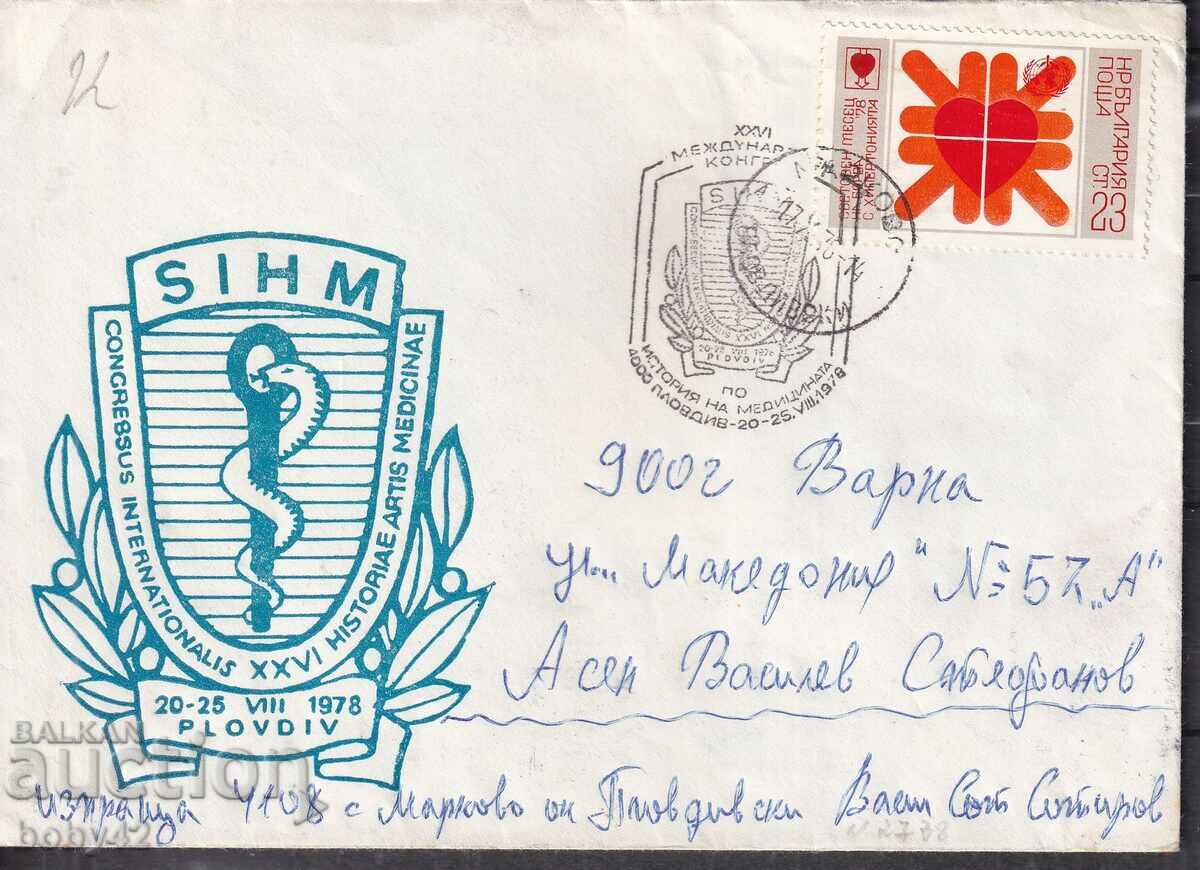 НР БЪЛГАРИЯ
ПОЩА
СТ. 23
СВЕТОВЕН МЕСЕЦ '78
НА БОРБА
С ХИПЕРТОНИЯТА
XXVI
МЕЖДУНАР
КОНГР
SIHM
20-25 VIII 1978
PLOVDIV
ПО
ИСТОРИЯ НА МЕДИЦИНАТА
4000 ПЛОВДИВ-20-25.VIII.1978
SIHM
CONGRESSUS INTERNATIONALIS XXVI HISTORIAE ARTIS MEDICINAE
20-25 VIII 1978
PLOVDIV
9002 Варна
ул. Македония" № 57 „А"
Асен Василев
изпраща 4108 с Марково ок Пловдивски Васил Сот Сотиров
BALKAN
auction
boby42